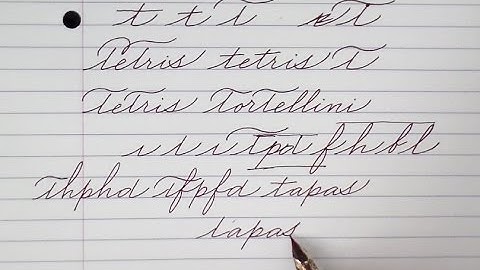 t t T T
Tetris tetris T
Tetris Tortellini
ι ι ι Tpd f h b l
ihphd ifpfd tapas
iapas